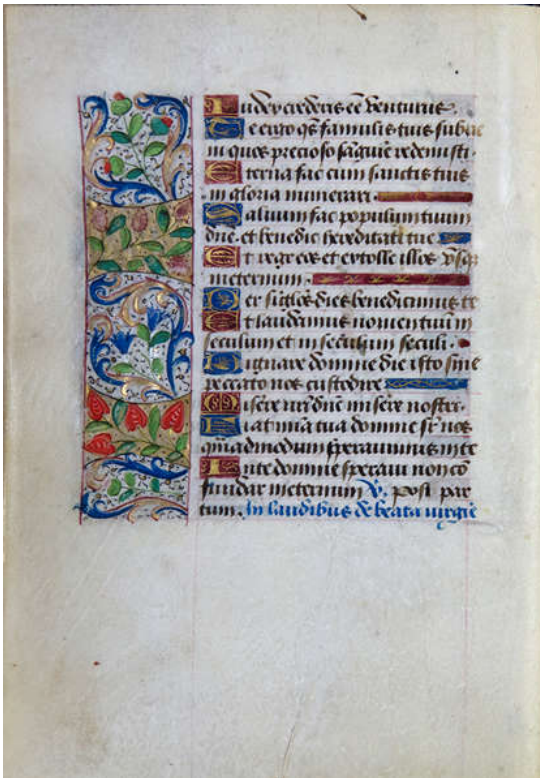 Iudex crederis eē venturus.
Te ergo qs famulis tuis subue
ni quos precioso sāguīe redemisti.
Eterna fac cum sanctis tuis
in gloria numerari.
Saluum fac populum tuum
dne. et benedic hereditati tue
Et rege eos et extolle illos vsqz
ineternum.
Per sīglos dies benedicimus te
Et laudamus nomen tuū in
seculum et in seculum seculi.
Dignare domine die isto sine
peccato nos custodire
Misere nr̄i dn̄e misere nostri.
Fiat mīa tua domine sr̄ nos
quēadmodum sperauimus inte
Inte domine speraui non cō
fundar ineternum ℣. post par
tum. In laudibus de beata uirgīe